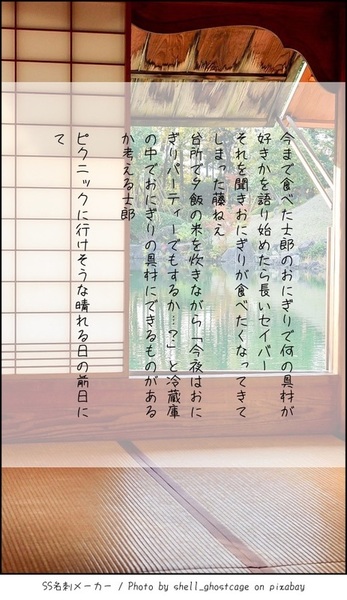 今まで食べた士郎のおにぎりで何の具材が
好きかを語り始めたら長いセイバー
それを聞きおにぎりが食べたくなってきて
しまった藤ねえ
台所で夕飯の米を炊きながら「今夜はおに
ぎりパーティーでもするか…？」と冷蔵庫
の中でおにぎりの具材にできるものがある
か考える士郎
ピクニックに行けそうな晴れる日の前日に
て
SS名刺メーカー / Photo by shell_ghostcage on pixabay